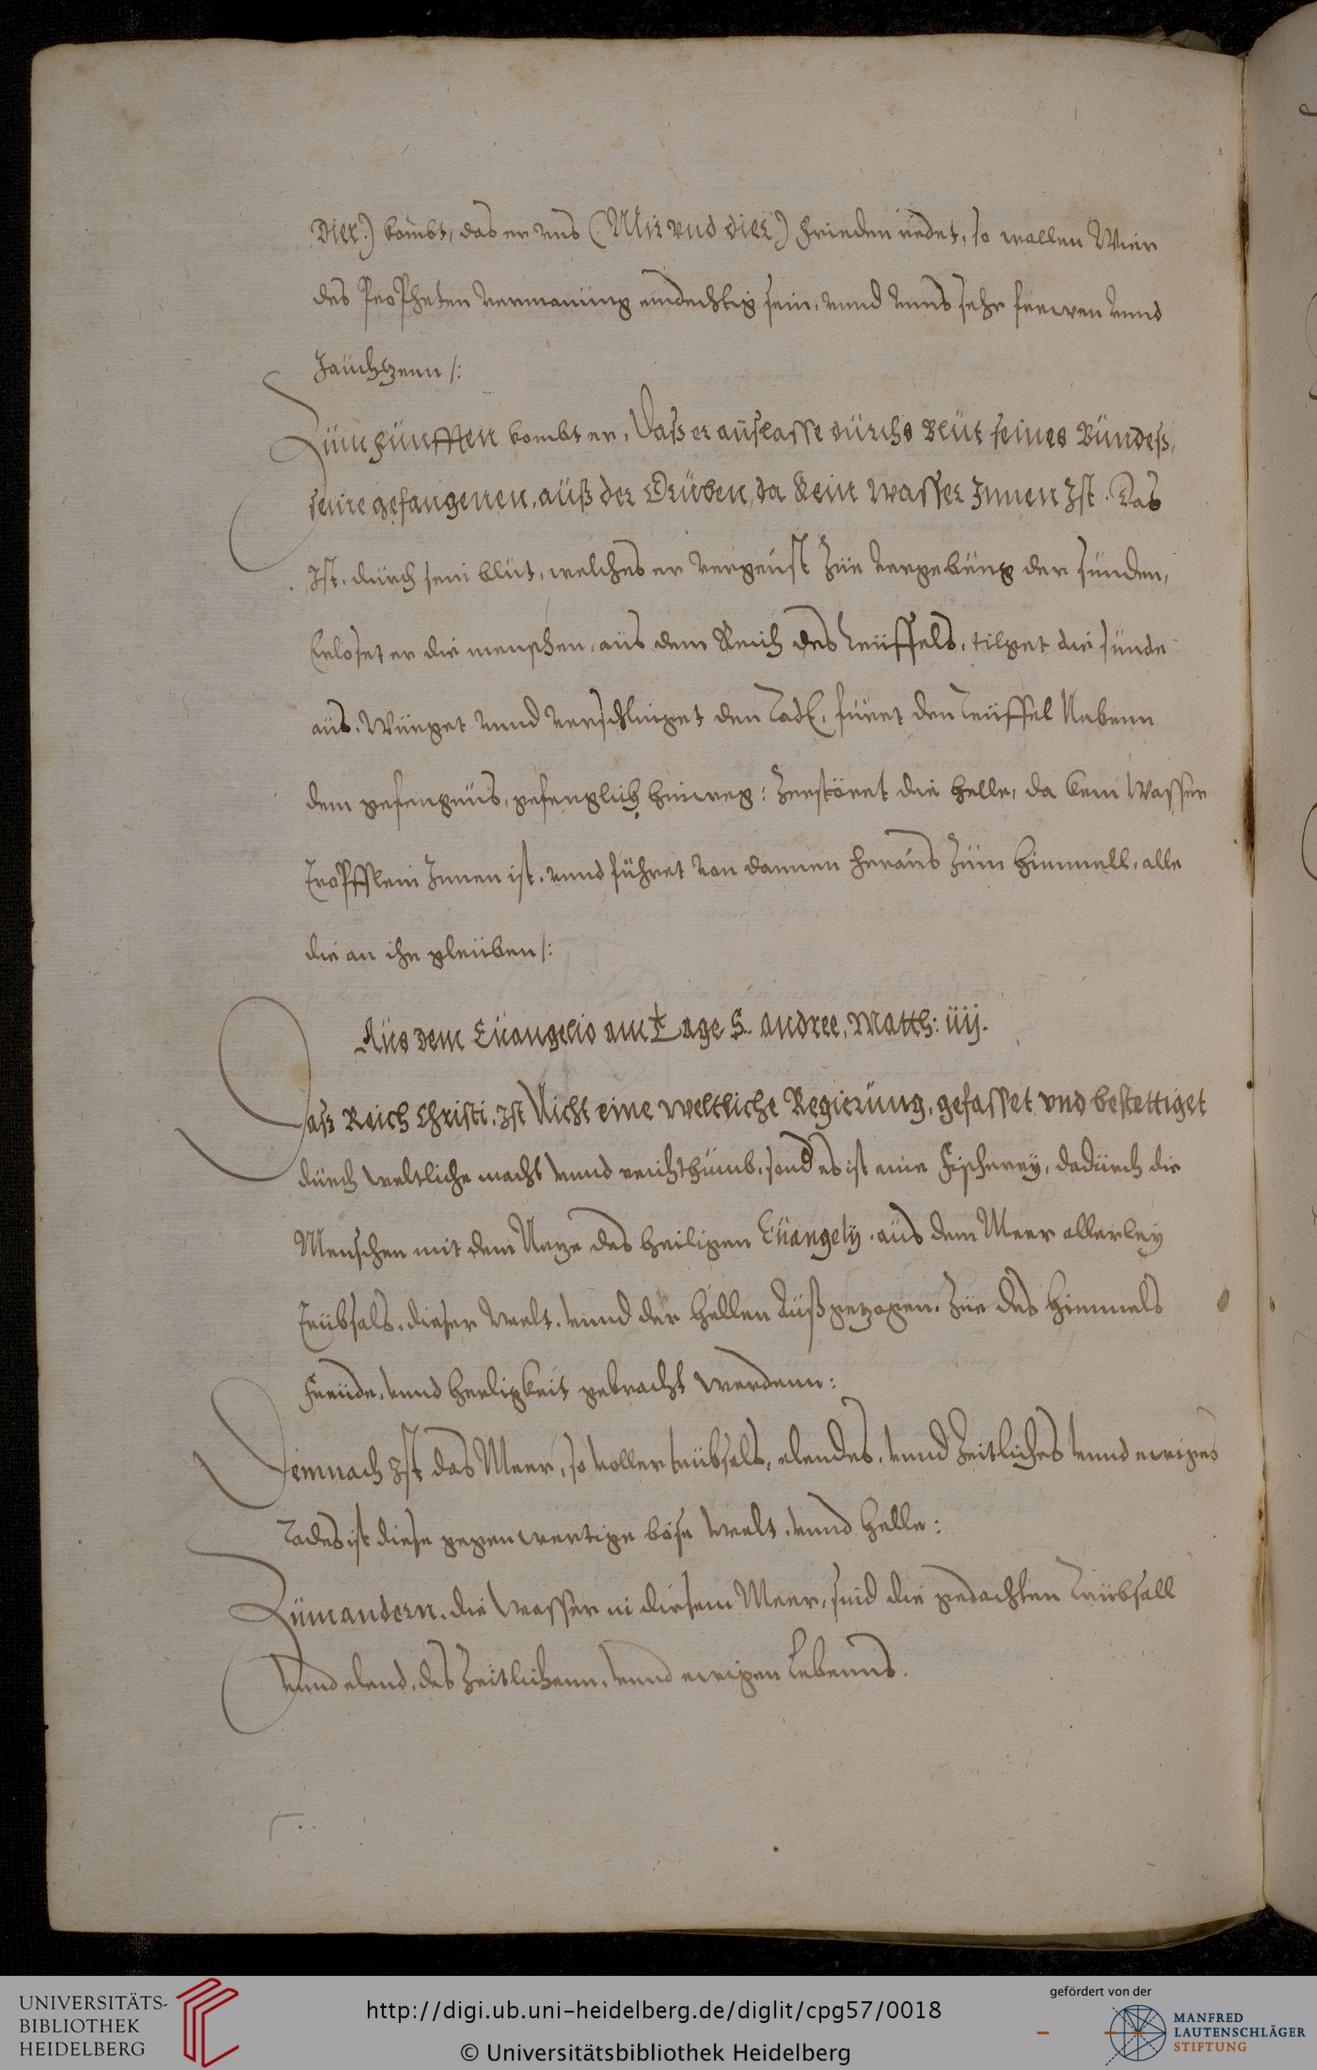 Dier:) kombt, das er uns (: Mir vnd dier:) frieden redet, so wollen Wier
des Propheten vermanüng eindechtig sein, vnnd vnns sehr frewen vnnd
Jaüchtzenn /:
Züm fünfften kombt er, Daß er außlasse dürchs Blüt seines Bündeß,
seine gefangenen, aüß der Grüben, da kein wasser Innen Ist. Das
Ist, dürch sein blüt, welches er vergeüst züe vergebüng der sünden,
Erloset er die menschen, aüs dem Reich des teüffels, tilget die sünde
aüs, Würget vnnd verschlinget den Todt, füret den Teüffel Nebenn
dem gefengnüs, gefenglich hinweg: Zerstöret die helle, da kein Wasser
tropfflein Innen ist, vnnd führet von dannen heraüs züm himmell, alle
die an ihn gleüben /:
Aüs dem Eüangelio am Tage S. Andree, Matth: iiij.
Daß Reich Christi, Ist Nicht eine weltliche Regierüng, gefasset vnd bestettiget
dürch weltliche macht vnnd reichthümb, sond es ist eine Fischerey, dadürch die
Menschen mit dem Netze des heiligen Eüangely, aüs dem Meer allerley
trübsals, dieser welt, vnnd der hellen Aüßgezogen, züe des himmels
Freüde, vnnd herligkeit gebracht werdenn:
Demnach Ist das Meer, so voller trübsals, elendes, vnnd Zeitliches vnnd ewiges
Todes ist diese gegenwertige böse welt, vnnd helle:
Züm andern, die Wasser in diesem Meer, sind die gedachten Trübsall
vnnd elend, des Zeitlichenn, vnnd ewigen Lebenns.
UNIVERSITÄTS-
BIBLIOTHEK
HEIDELBERG
http://digi.ub.uni-heidelberg.de/diglit/cpg57/0018
© Universitätsbibliothek Heidelberg
gefördert von der
MANFRED
LAUTENSCHLÄGER
STIFTUNG